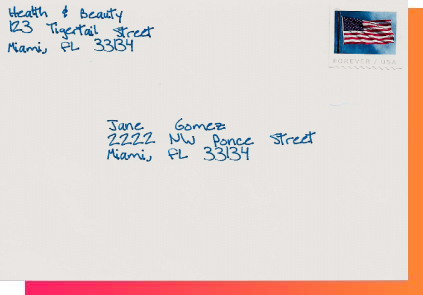 Health & Beauty
123 Tigertail Street
Miami, FL 33134
FOREVER / USA
Jane Gomez
2222 NW Ponce Street
Miami, FL 33134